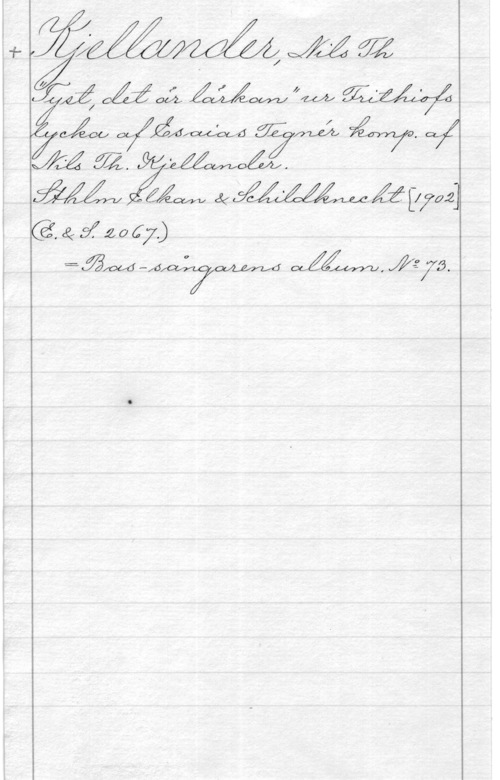 + Kjellander, Nils Th
"Tyst, det är lärkan" ur Frithiofs
lycka af Esaias Tegnér komp. af
Nils Th. Kjellander.
Sthlm Elkan & Schildknecht [1902]
(E. & S. 2067.)
= Bas-sångarens album. Nº 73.